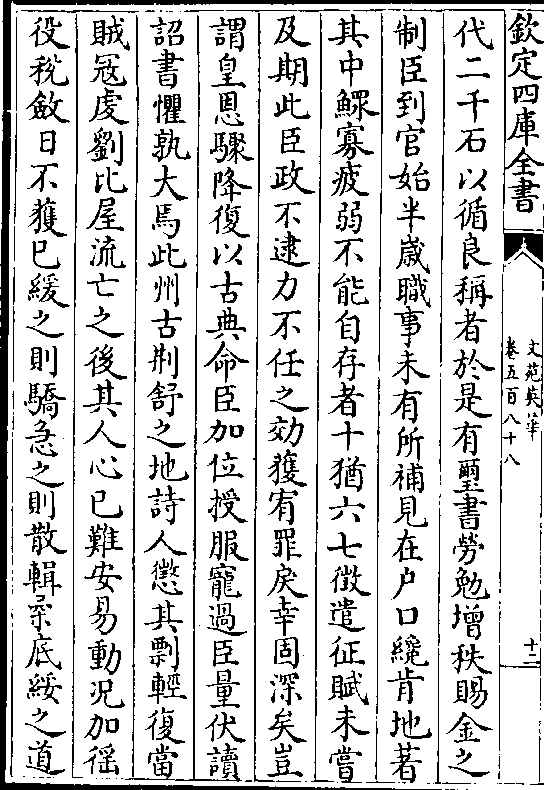 欽定四庫全書
文苑英華
卷五百八十八
十二
代二千石以循良稱者於是有璽書勞勉增秩賜金之
制臣到官始半歲職事未有所補見在户口纔肯地著
其中鰥寡疲弱不能自存者十猶六七徵遣征賦未嘗
及期此臣政不逮力不任之効獲宥罪戾幸固深矣豈
謂皇恩驟降復以古典命臣加位授服寵過臣量伏讀
詔書懼孰大焉此州古荆舒之地詩人懲其剽輕復當
賊冦虔劉比屋流亡之後其人心已難安易動況加徭
役税斂日不獲已緩之則驕急之則散輯寧底綏之道